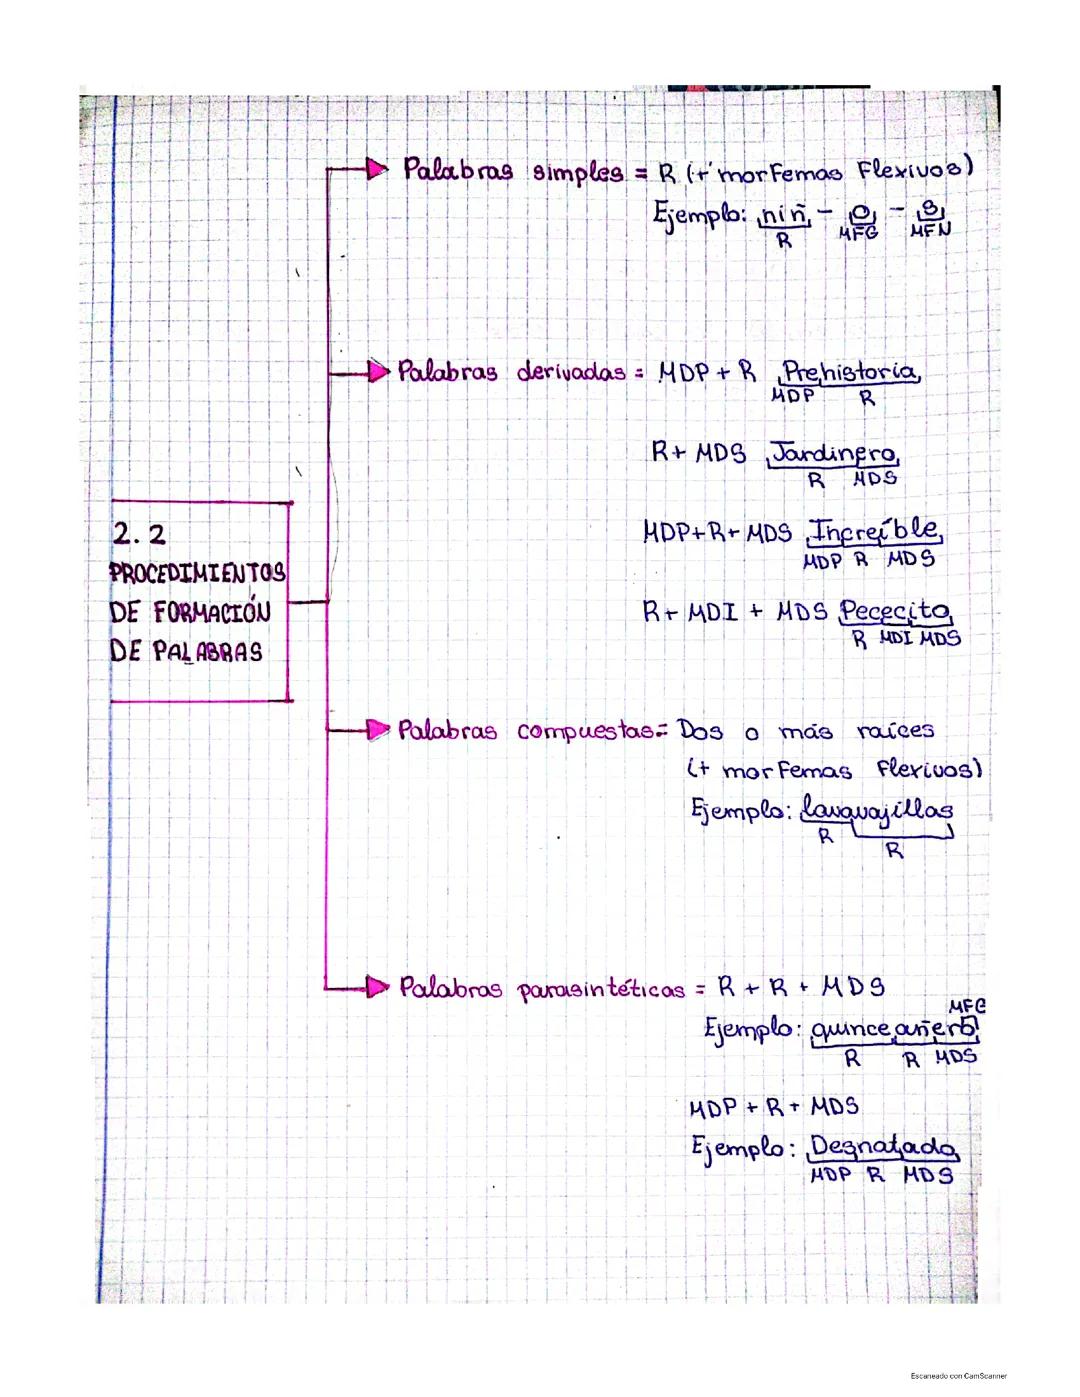 Palabras simples = R (+ morfemas flexivos)
Ejemplo: niñ - o - s
R MFG MFN
Palabras derivadas = MDP + R Prehistoria
MDP R
R + MDS Jardinero
R MDS
MDP + R + MDS Increíble
MDP R MDS
R + MDI + MDS Pececito
R MDI MDS
2.2
PROCEDIMIENTOS
DE FORMACIÓN
DE PALABRAS
Palabras compuestas = Dos o más raíces
(+ morfemas flexivos)
Ejemplo: lavavajillas
R
R
Palabras parasintéticas = R + R + MDS
MFG
Ejemplo: quinceañero
R R MDS
MDP + R + MDS
Ejemplo: Desnatado
MDP R MDS
Escaneado con CamScanner